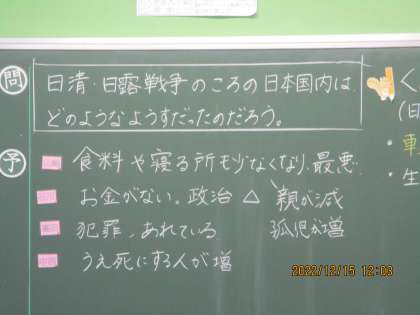 問
日清・日露戦争のころの日本国内は、
どのようなようすだったのだろう。
予
食料や寝る所も少なくなり、最悪
お金がない。政治 △ 親が減
犯罪、あれている 孤児が増
うえ死にする人が増
く
(日
・車
・生
2022/12/15 12:03